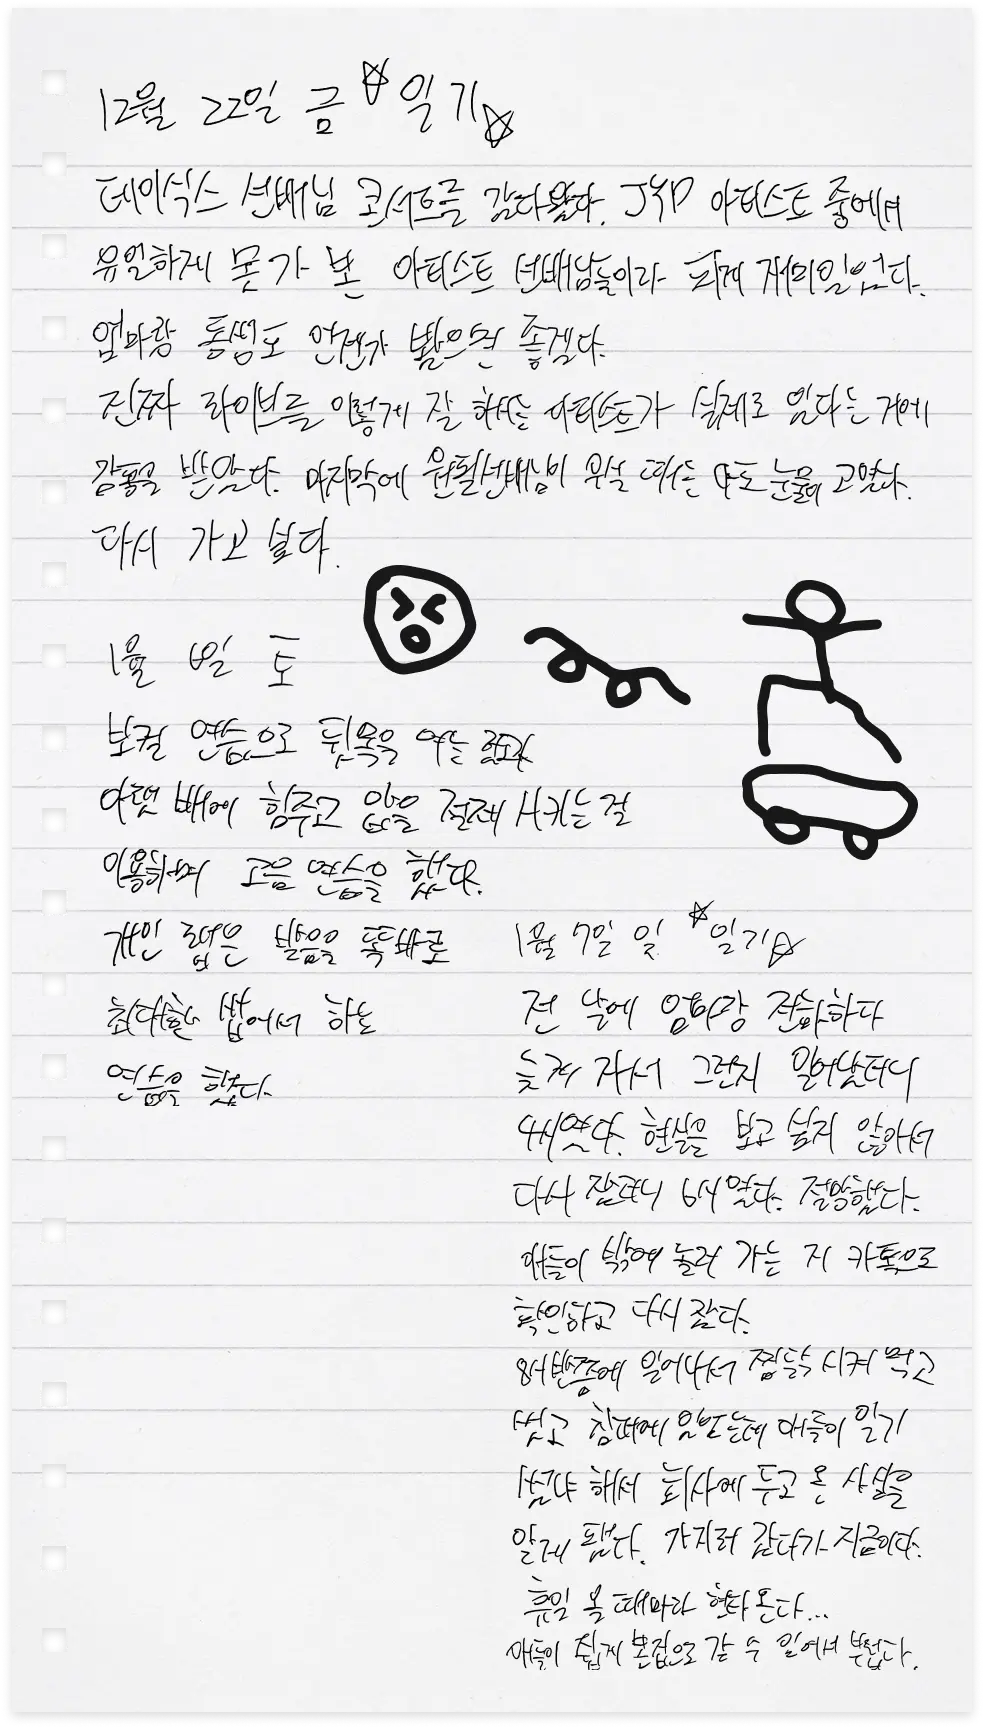 12월 22일 금 ☆일기☆
데이식스 선배님 콘서트를 갔다왔다. JYP 아티스트 중에서
유일하게 못 가 본 아티스트 선배님들이라 되게 재미있었다.
엄마랑 동생도 언젠가 봤으면 좋겠다.
진짜 라이브를 이렇게 잘 하시는 아티스트가 실제로 있다는 거에
감동을 받았다. 마지막에 원필선배님이 우실 때는 나도 눈물이 고였다.
다시 가고 싶다.
1월 6일 토
보컬 연습으로 뒷목을 여는 효과,
아랫 배에 힘주고 입을 절제 시키는 걸
이용하며 고음 연습을 했다.
개인 랩은 발음을 똑바로
최대한 씹어서 하는
연습을 했다.
1월 7일 일 ☆일기☆
전 날에 엄마랑 전화하다
늦게 자서 그런지 일어났더니
4시였다. 현실을 보고 싶지 않아서
다시 잤더니 6시였다. 절망했다.
애들이 밖에 놀러 가는 지 카톡으로
확인하고 다시 잤다.
8시 반쯤에 일어나서 찜닭 시켜 먹고
씻고 침대에 있었는데 애들이 일기
썼냐 해서 회사에 두고 온 사실을
알게 됐다. 가지러 갔다가 지금이다.
휴일 올 때마다 현타 온다...
애들이 쉽게 본집으로 갈 수 있어서 부럽다.